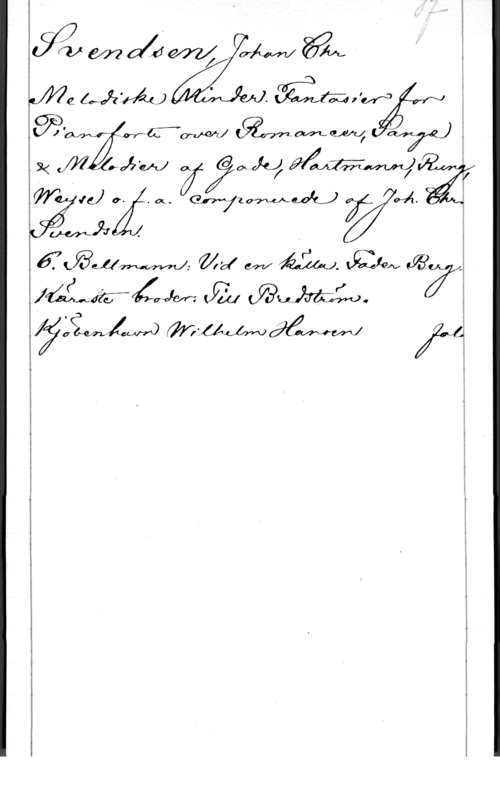 Svendsen, Johan Chr.
Melodiske Minder. Fantasier for
Pianoforte over Romancer, Sange
& Melodier af Gade, Hartmann, Rung,
Weyse o. f. a. componerede af Joh. Chr.
Svendsen.
6. Bellmann: Vid en källa. Fader Berg.
Käraste broder: Till Bredström.
Kjöbenhavn Wilhelm Hansen fol.